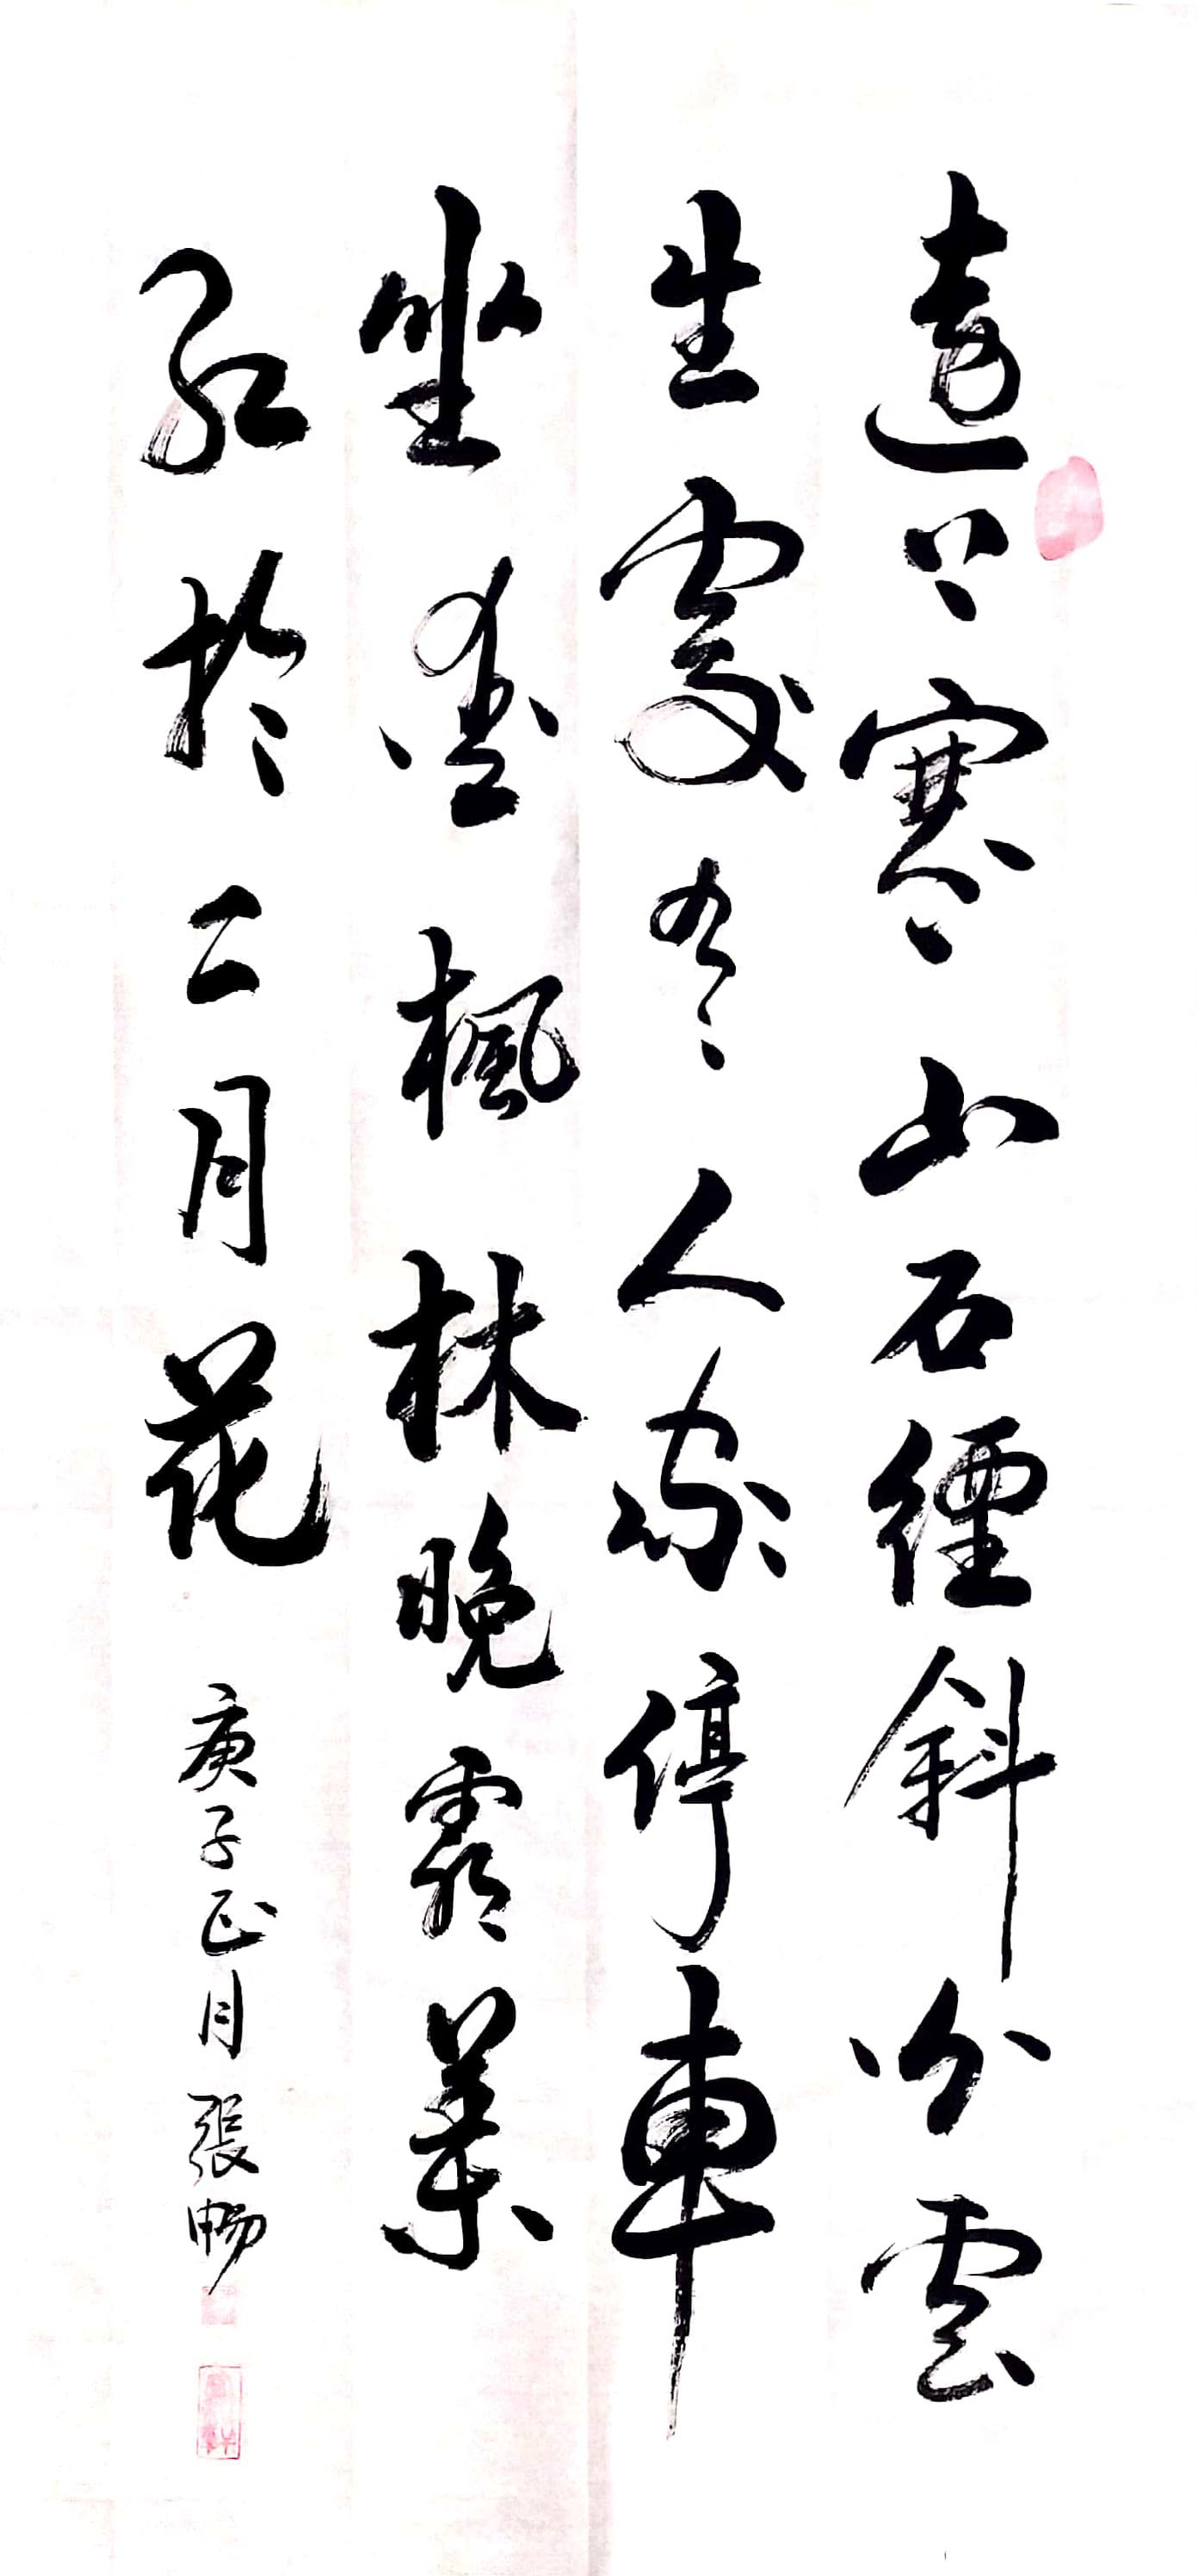 遠上寒山石徑斜白雲
生處有人家停車
坐愛楓林晚霜葉
紅於二月花
庚子正月張暢